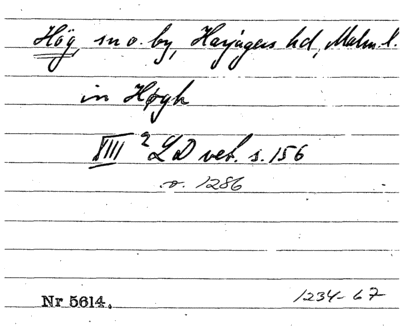 Hög, sn o. by, Harjagers hd, Malm. l.
in Høgh
XIII 2 LD vet. s. 156
o. 1286
Nr 5614. 1234-67